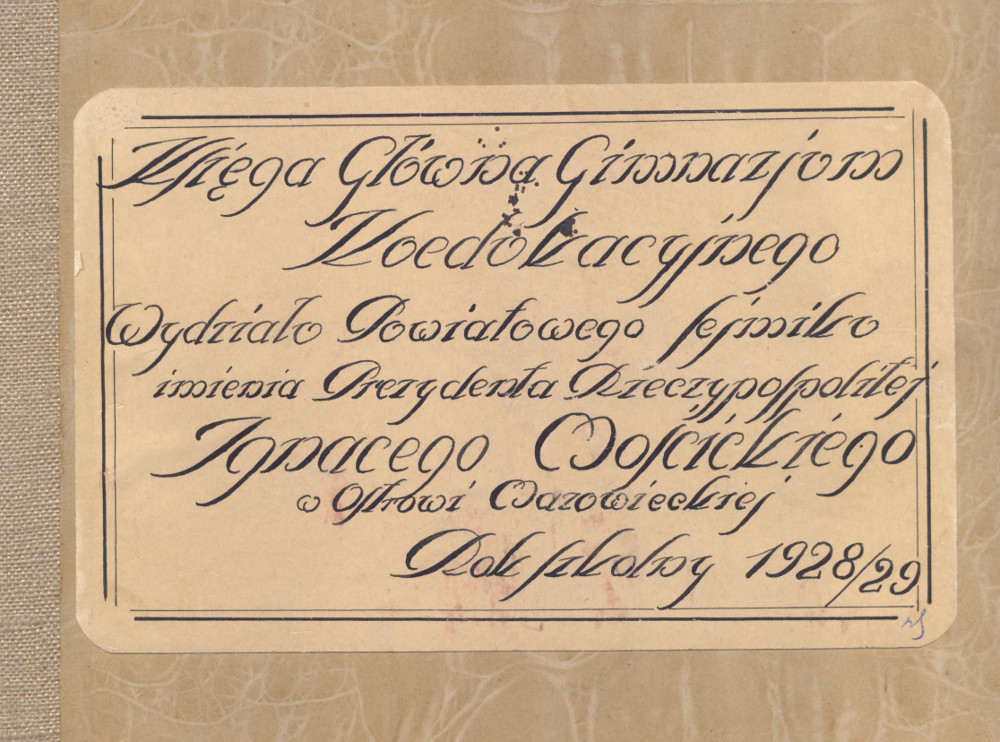 Księga Główna Gimnazjum
Koedukacyjnego
Wydziału Powiatowego Sejmiku
imienia Prezydenta Rzeczypospolitej
Ignacego Mościckiego
w Ostrowi Mazowieckiej
Rok szkolny 1928/29